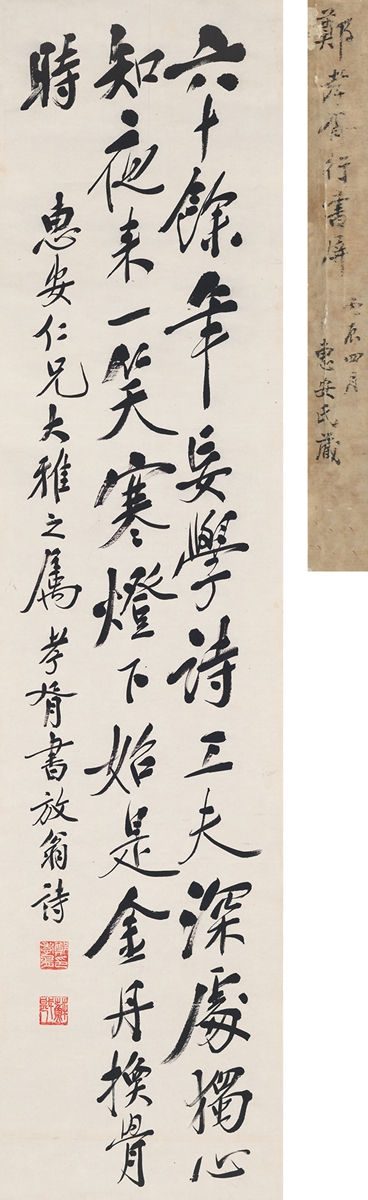 六十餘年妄學詩工夫深處獨心
知夜来一笑寒燈下始是金丹換骨
時
惠安仁兄大雅之屬孝胥書放翁詩
鄭孝胥行書屏
丙辰四月
惠安氏藏